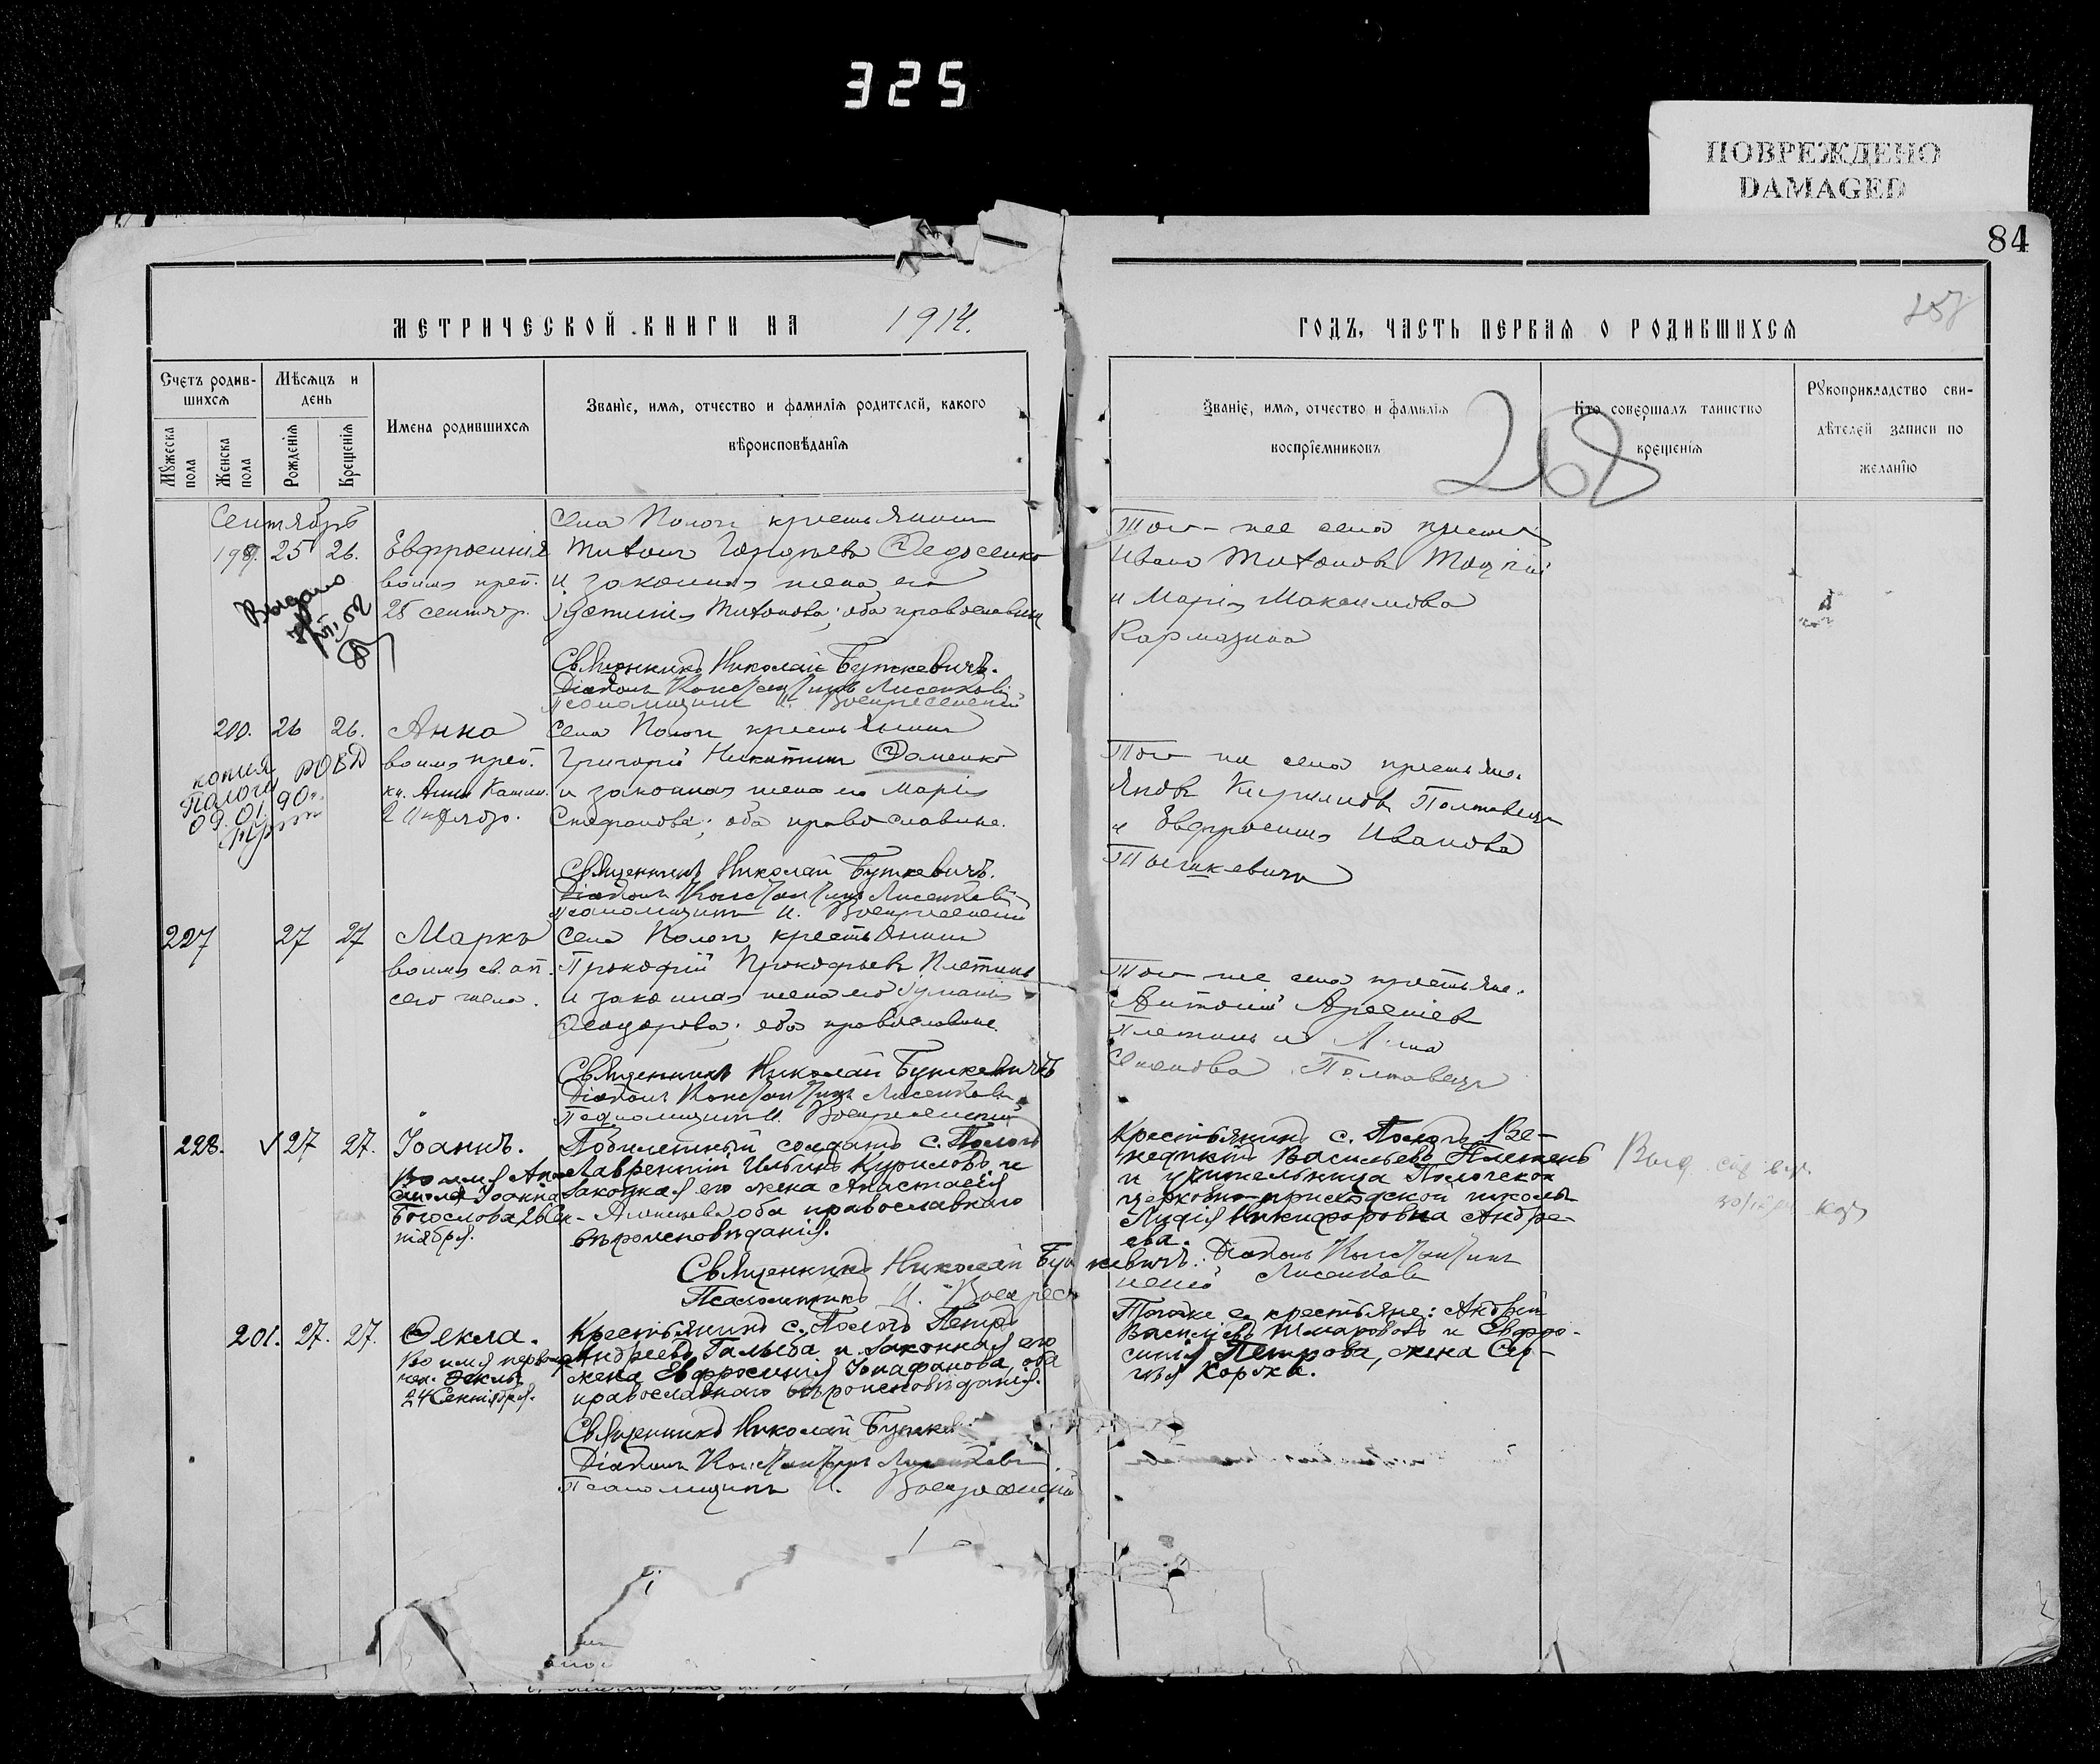 325
ПОВРЕЖДЕНО
DAMAGED
84
МЕТРИЧЕСКОЙ КНИГИ НА 1914.
ГОДЪ, ЧАСТЬ ПЕРВАЯ О РОДИВШИХСЯ
257
268
Счетъ родив-
шихся
Мѣсяцъ и
день
Мужеска
пола
Женска
пола
Рожденія
Крещенія
Имена родившихся
Званіе, имя, отчество и фамилія родителей, какого
вѣроисповѣданія
Званіе, имя, отчество и фамилія
воспріемниковъ
Кто совершалъ таинство
крещенія
Рукоприкладство сви-
дѣтелей записи по
желанію
Сентябрь
199. 25 26.
Выдано
Евфросинія
во имя преп.
25 сентябр.
Села Пологи крестьянинъ
Титовъ Ѳедосенко
и законная жена его
Титова; оба православные
Священникъ Николай Буткевичъ.
Діаконъ Константинъ Лисенковъ
Псаломщикъ И. Воскресенскій
Того-же села крестьяне
Иванъ
и Марія Максимова
Кармазина
200. 26 26.
копия РОВД
Пологи
09.01.90г.
Анна
во имя преп.
кн. Анны Кашин.
2 октябр.
Села Пологи крестьянинъ
Григорій Никитинъ Ѳоменко
и законная жена его Марія
Стефанова; оба православные.
Священникъ Николай Буткевичъ.
Діаконъ Константинъ Лисенковъ
Псаломщикъ И. Воскресенскій
Того же села крестьяне.
Яковъ Кирилловъ Полтавецъ
и Евфросинія Иванова
227 27 27
Маркъ
во имя св. ап.
сего числа.
Села Пологи крестьянинъ
Прокофій Прокофьевъ Плетинь
и законная жена его
Ѳеодорова; оба православные.
Священникъ Николай Буткевичъ
Діаконъ Константинъ Лисенковъ
Псаломщикъ И. Воскресенскій
Того же села крестьяне.
Антоній
Плетинь и
Полтавецъ
228. √ 27 27.
Іоаннъ.
Во имя Апо-
стола Іоанна
Богослова 26 Сен-
тября.
Побилетный солдатъ с. Пологъ
Лаврентій Ильинъ Куриловъ и
законная его жена Анастасія
Алексѣева оба православнаго
вѣроисповѣданія.
Священникъ Николай Буткевичъ. Діаконъ Константинъ
Лисенковъ
Псаломщикъ И. Воскресенскій
Крестьянинъ с. Пологъ Ве-
недиктъ Васильевъ Плетень
и учительница Пологской
церковно-приходской школы
Лидія Никифоровна Андре-
ева.
Выд.
201. 27. 27.
Ѳекла.
Во имя первому-
чен. Ѳеклы
24 Сентября.
Крестьянинъ с. Пологъ Петръ
Андреевъ Галыба и законная его
жена Евфросинія Іонафанова, оба
православнаго вѣроисповѣданія.
Священникъ Николай Буткев
Діаконъ Константинъ Лисенковъ
Псаломщикъ И. Воскресенскій
Того же с. крестьяне: Андрей
Василіевъ Шмаровозъ и Евфро-
синія Петрова, жена Сер-
гѣя Коржа.